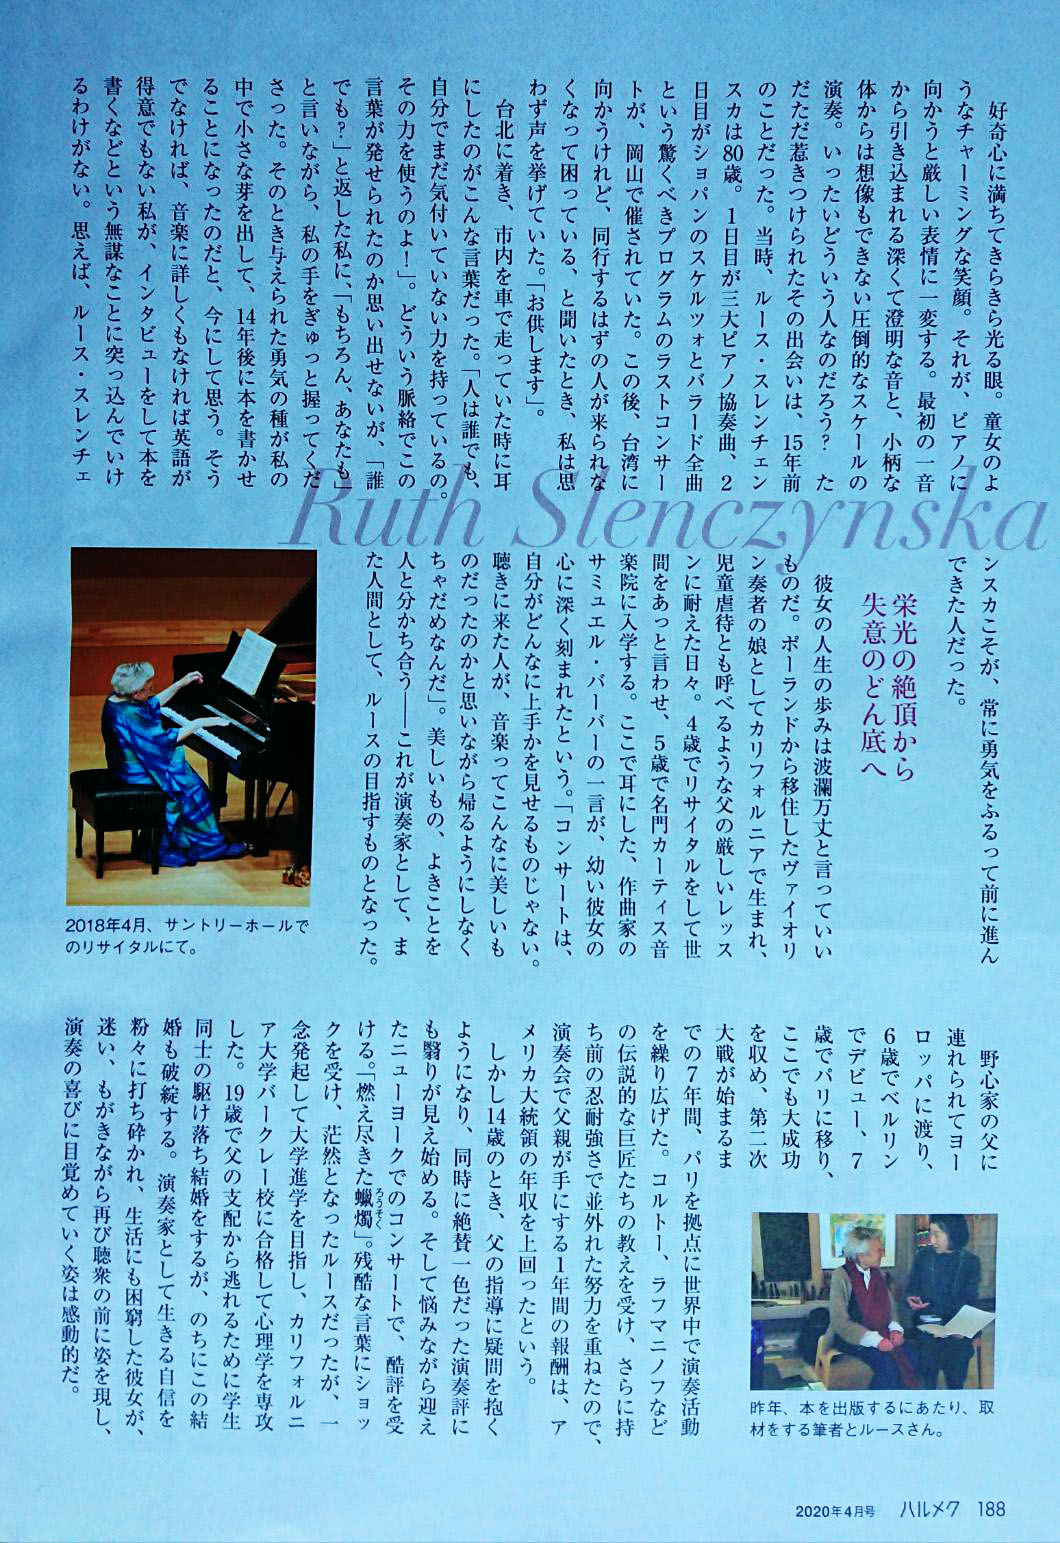 好奇心に満ちてきらきら光る眼。童女のよ
うなチャーミングな笑顔。それが、ピアノに
向かうと厳しい表情に一変する。最初の一音
から引き込まれる深くて澄明な音と、小柄な
体からは想像もできない圧倒的なスケールの
演奏。いったいどういう人なのだろう? た
だただ惹きつけられたその出会いは、15年前
のことだった。当時、ルース・スレンチェン
スカは80歳。1日目が三大ピアノ協奏曲、2
日目がショパンのスケルツォとバラード全曲
という驚くべきプログラムのラストコンサー
トが、岡山で催されていた。この後、台湾に
向かうけれど、同行するはずの人が来られな
くなって困っている、と聞いたとき、私は思
わず声を挙げていた。「お供します」。
台北に着き、市内を車で走っていた時に耳
にしたのがこんな言葉だった。「人は誰でも、
自分でまだ気付いていない力を持っているの。
その力を使うのよ!」。どういう脈絡でこの
言葉が発せられたのか思い出せないが、「誰
でも?」と返した私に、「もちろん、あなたも」
と言いながら、私の手をぎゅっと握ってくだ
さった。そのとき与えられた勇気の種が私の
中で小さな芽を出して、14年後に本を書かせ
ることになったのだと、今にして思う。そう
でなければ、音楽に詳しくもなければ英語が
得意でもない私が、インタビューをして本を
書くなどという無謀なことに突っ込んでいけ
るわけがない。思えば、ルース・スレンチェ
Ruth Slenczynska
ンスカこそが、常に勇気をふるって前に進ん
できた人だった。
栄光の絶頂から
失意のどん底へ
彼女の人生の歩みは波瀾万丈と言っていい
ものだ。ポーランドから移住したヴァイオリ
ン奏者の娘としてカリフォルニアで生まれ、
児童虐待とも呼べるような父の厳しいレッス
ンに耐えた日々。4歳でリサイタルをして世
間をあっと言わせ、5歳で名門カーティス音
楽院に入学する。ここで耳にした、作曲家の
サミュエル・バーバーの一言が、幼い彼女の
心に深く刻まれたという。「コンサートは、
自分がどんなに上手かを見せるものじゃない。
聴きに来た人が、音楽ってこんなに美しいも
のだったのかと思いながら帰るようにしなく
ちゃだめなんだ」。美しいもの、よきことを
人と分かち合う——これが演奏家として、ま
た人間として、ルースの目指すものとなった。
2018年4月、サントリーホールで
のリサイタルにて。
野心家の父に
連れられてヨー
ロッパに渡り、
6歳でベルリン
でデビュー、7
歳でパリに移り、
ここでも大成功
を収め、第二次
大戦が始まるま
での7年間、パリを拠点に世界中で演奏活動
を繰り広げた。コルトー、ラフマニノフなど
の伝説的な巨匠たちの教えを受け、さらに持
ち前の忍耐強さで並外れた努力を重ねたので、
演奏会で父親が手にする1年間の報酬は、ア
メリカ大統領の年収を上回ったという。
しかし14歳のとき、父の指導に疑問を抱く
ようになり、同時に絶賛一色だった演奏評に
も翳りが見え始める。そして悩みながら迎え
たニューヨークでのコンサートで、酷評を受
ける。「燃え尽きた蠟燭」。残酷な言葉にショッ
ろうそく
クを受け、茫然となったルースだったが、一
念発起して大学進学を目指し、カリフォルニ
ア大学バークレー校に合格して心理学を専攻
した。19歳で父の支配から逃れるために学生
同士の駆け落ち結婚をするが、のちにこの結
婚も破綻する。演奏家として生きる自信を
粉々に打ち砕かれ、生活にも困窮した彼女が、
迷い、もがきながら再び聴衆の前に姿を現し、
演奏の喜びに目覚めていく姿は感動的だ。
昨年、本を出版するにあたり、取
材をする筆者とルースさん。
2020年4月号 ハルメク 188